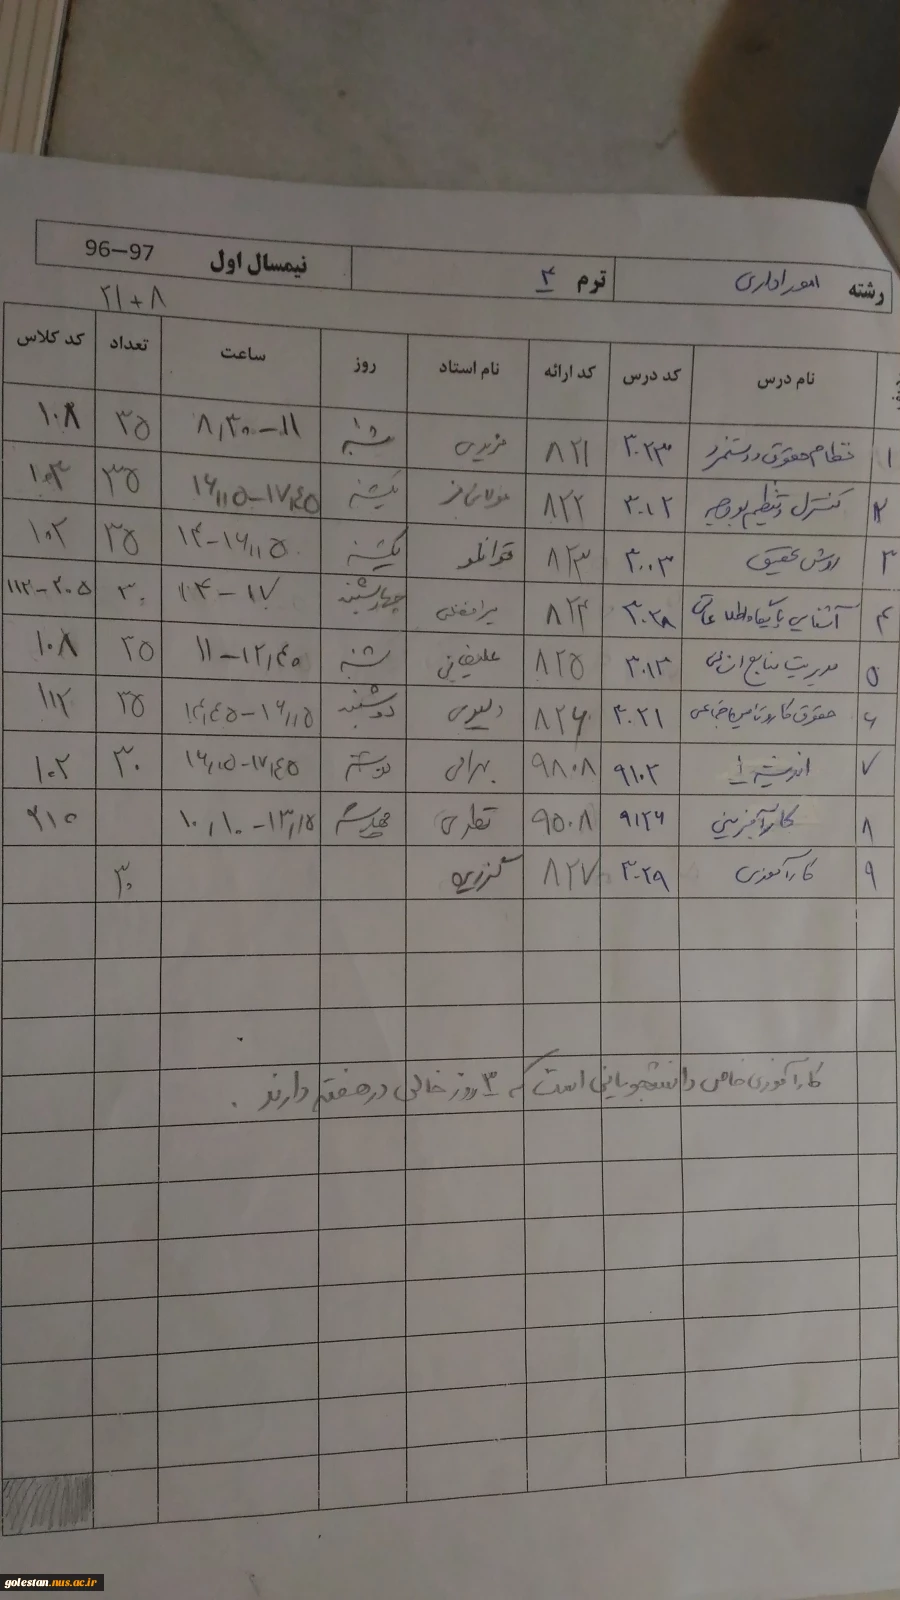 رشته امور اداری ترم ۴ نیمسال اول 96–97
۲۱+۸
نام درس کد درس کد ارائه نام استاد روز ساعت تعداد کد کلاس
۱ نظام حقوق و دستمزد ۳۰۲۳ ۸۲۱ شنبه ۸٫۳۰-۱۱ ۳۵ ۱۰۸
۲ کنترل و تنظیم بودجه ۳۰۱۲ ۸۲۲ یکشنبه ۱۶٫۱۵-۱۷٫۴۵ ۳۵ ۱۰۳
۳ روش تحقیق ۳۰۰۳ ۸۲۳ قوانلو یکشنبه ۱۴-۱۶٫۱۵ ۳۵ ۱۰۲
۴ آشنایی با پایگاه اطلاعاتی ۳۰۲۸ ۸۲۴ چهارشنبه ۱۴-۱۷ ۳۰ ۱۱۲-۲۰۵
۵ مدیریت منابع انسانی ۳۰۱۳ ۸۲۵ علیخانی شنبه ۱۱-۱۲٫۴۰ ۲۵ ۱۰۸
۶ حقوق کار و تامین اجتماعی ۳۰۲۱ ۸۲۶ دوشنبه ۱۴٫۴۵-۱۶٫۱۵ ۳۵ ۱۱۲
۷ اندیشه ۱ ۹۱۰۲ ۹۸۰۸ بهرامی دوشنبه ۱۶٫۱۵-۱۷٫۴۵ ۳۰ ۱۰۲
۸ کارآفرینی ۹۱۲۶ ۹۵۰۸ چهارشنبه ۱۰٫۱۰-۱۳٫۱۵ ۲۱۵
۹ کارآموزی ۳۰۲۹ ۸۲۷ ۳۰
کارآموزی خاص دانشجویانی است که ۳ روز خالی در هفته دارند .
golestan.nus.ac.ir